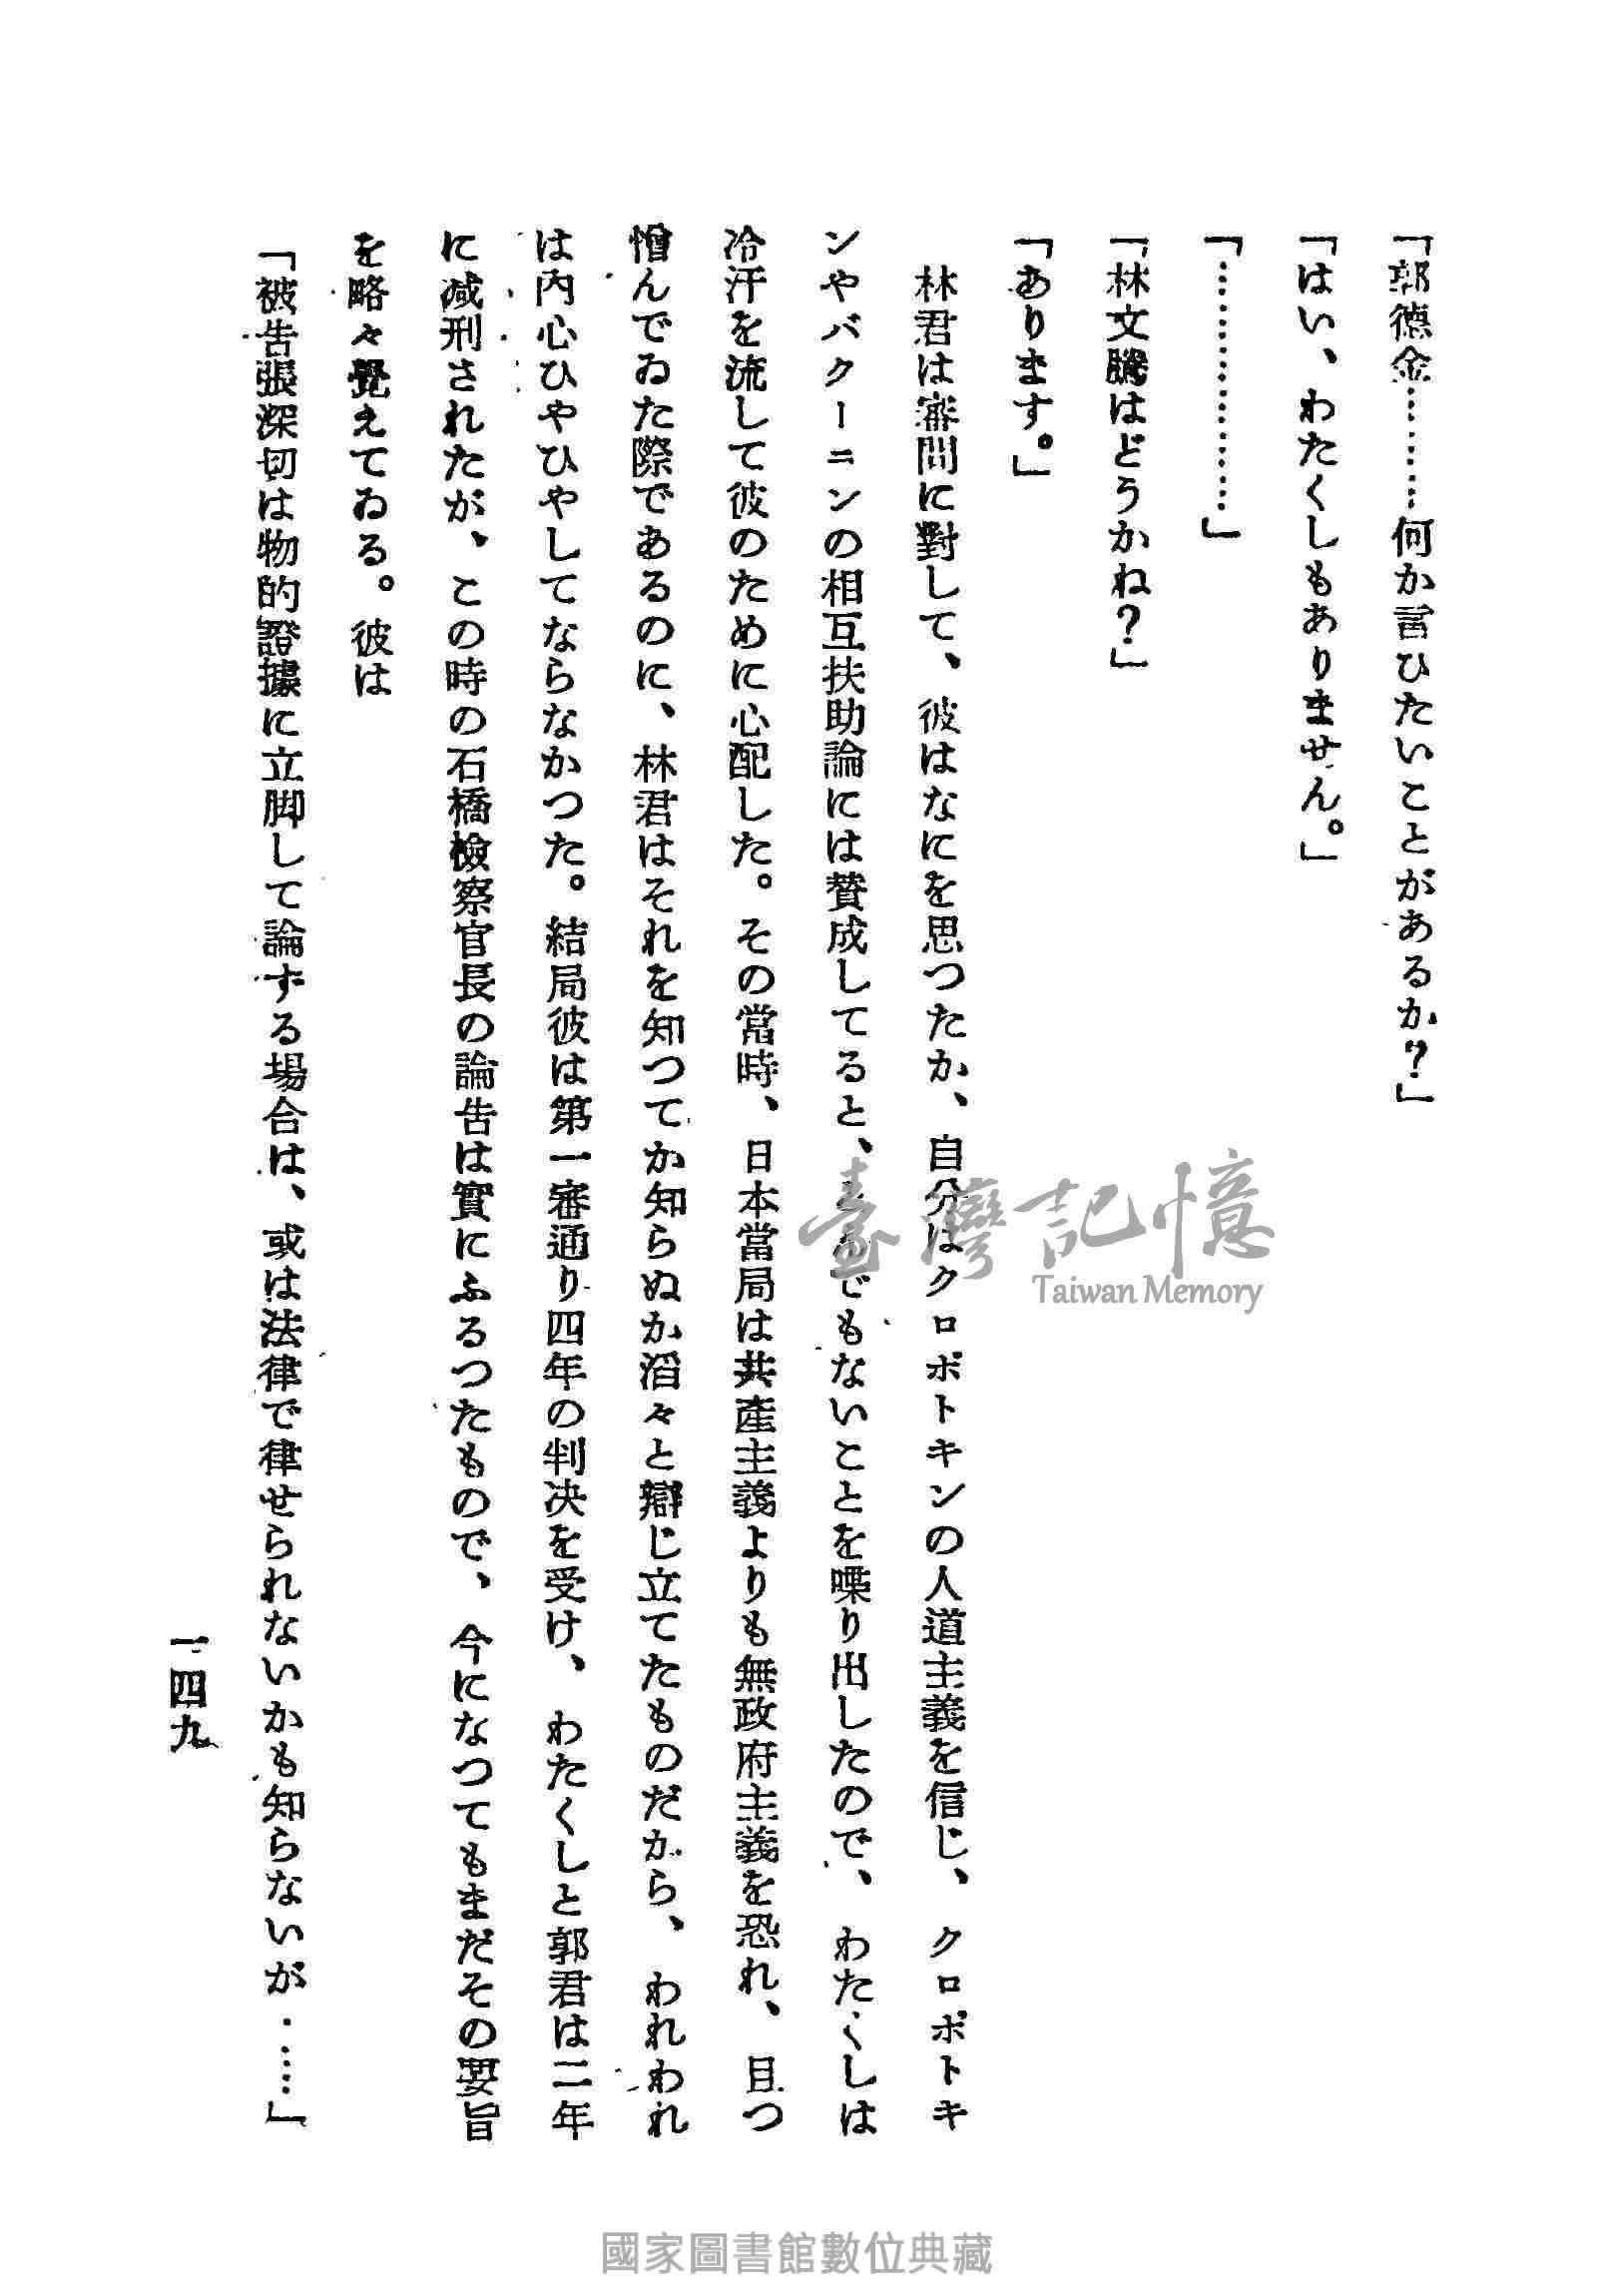 「郭德金………何か言ひたいことがあるか？」
「はい、わたくしもありません。」
「………………」
「林文騰はどうかね？」
「あります。」
林君は審問に對して、彼はなにを思つたか、自分はクロポトキンの人道主義を信じ、クロポトキ
ンやバクーニンの相互扶助論には賛成してると、とんでもないことを喋り出したので、わたくしは
冷汗を流して彼のために心配した。その當時、日本當局は共產主義よりも無政府主義を恐れ、且つ
憎んでゐた際であるのに、林君はそれを知つてか知らぬか滔々と辯じ立てたものだから、われわれ
は內心ひやひやしてならなかつた。結局彼は第一審通り四年の判決を受け、わたくしと郭君は二年
に減刑されたが、この時の石橋檢察官長の論告は實にふるつたもので、今になつてもまだその要旨
を略々覺えてゐる。彼は
「被告張深切は物的證據に立脚して論ずる場合は、或は法律で律せられないかも知らないが……」
一四九
臺灣記憶
Taiwan Memory
國家圖書館數位典藏